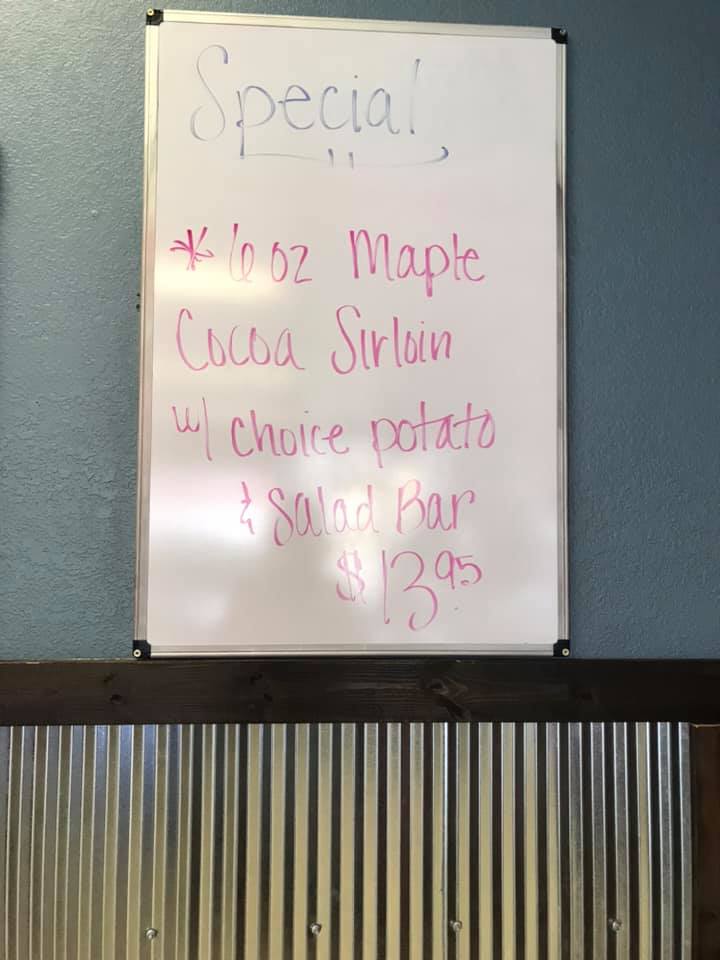 Special
* 6 oz Maple
Cocoa Sirloin
w/ choice potato
& Salad Bar
$13.95